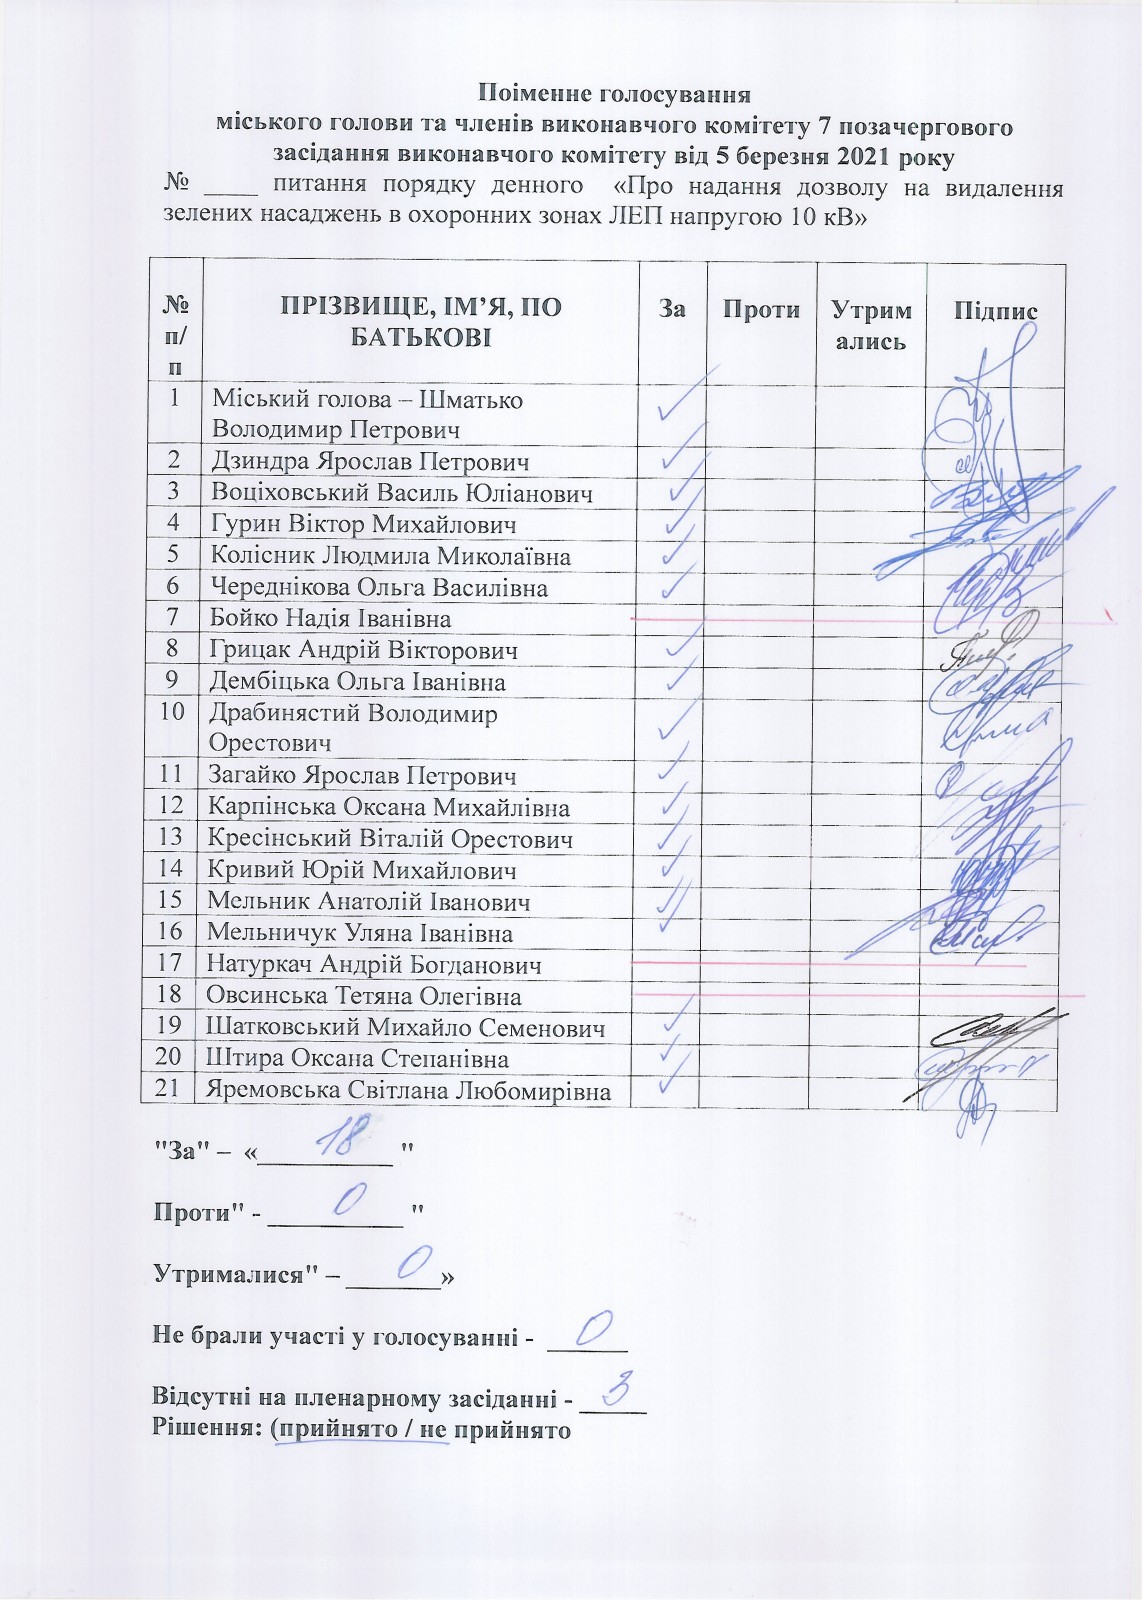 Поіменне голосування
міського голови та членів виконавчого комітету 7 позачергового
засідання виконавчого комітету від 5 березня 2021 року
№ ____ питання порядку денного «Про надання дозволу на видалення
зелених насаджень в охоронних зонах ЛЕП напругою 10 кВ»
№ п/п ПРІЗВИЩЕ, ІМ’Я, ПО БАТЬКОВІ За Проти Утримались Підпис
1 Міський голова – Шматько
Володимир Петрович
2 Дзиндра Ярослав Петрович
3 Воціховський Василь Юліанович
4 Гурин Віктор Михайлович
5 Колісник Людмила Миколаївна
6 Череднікова Ольга Василівна
7 Бойко Надія Іванівна
8 Грицак Андрій Вікторович
9 Дембіцька Ольга Іванівна
10 Драбинястий Володимир
Орестович
11 Загайко Ярослав Петрович
12 Карпінська Оксана Михайлівна
13 Кресінський Віталій Орестович
14 Кривий Юрій Михайлович
15 Мельник Анатолій Іванович
16 Мельничук Уляна Іванівна
17 Натуркач Андрій Богданович
18 Овсинська Тетяна Олегівна
19 Шатковський Михайло Семенович
20 Штира Оксана Степанівна
21 Яремовська Світлана Любомирівна
"За" – « 18 "
Проти" - 0 "
Утрималися" – 0 »
Не брали участі у голосуванні - 0
Відсутні на пленарному засіданні - 3
Рішення: (прийнято / не прийнято